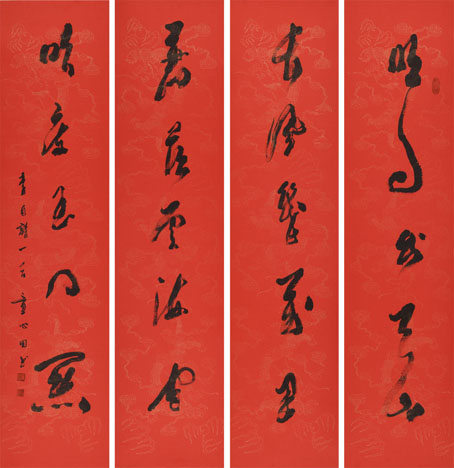 明月出天山
長風幾萬里
蒼茫雲海間
吹度玉門關
李白詩一首